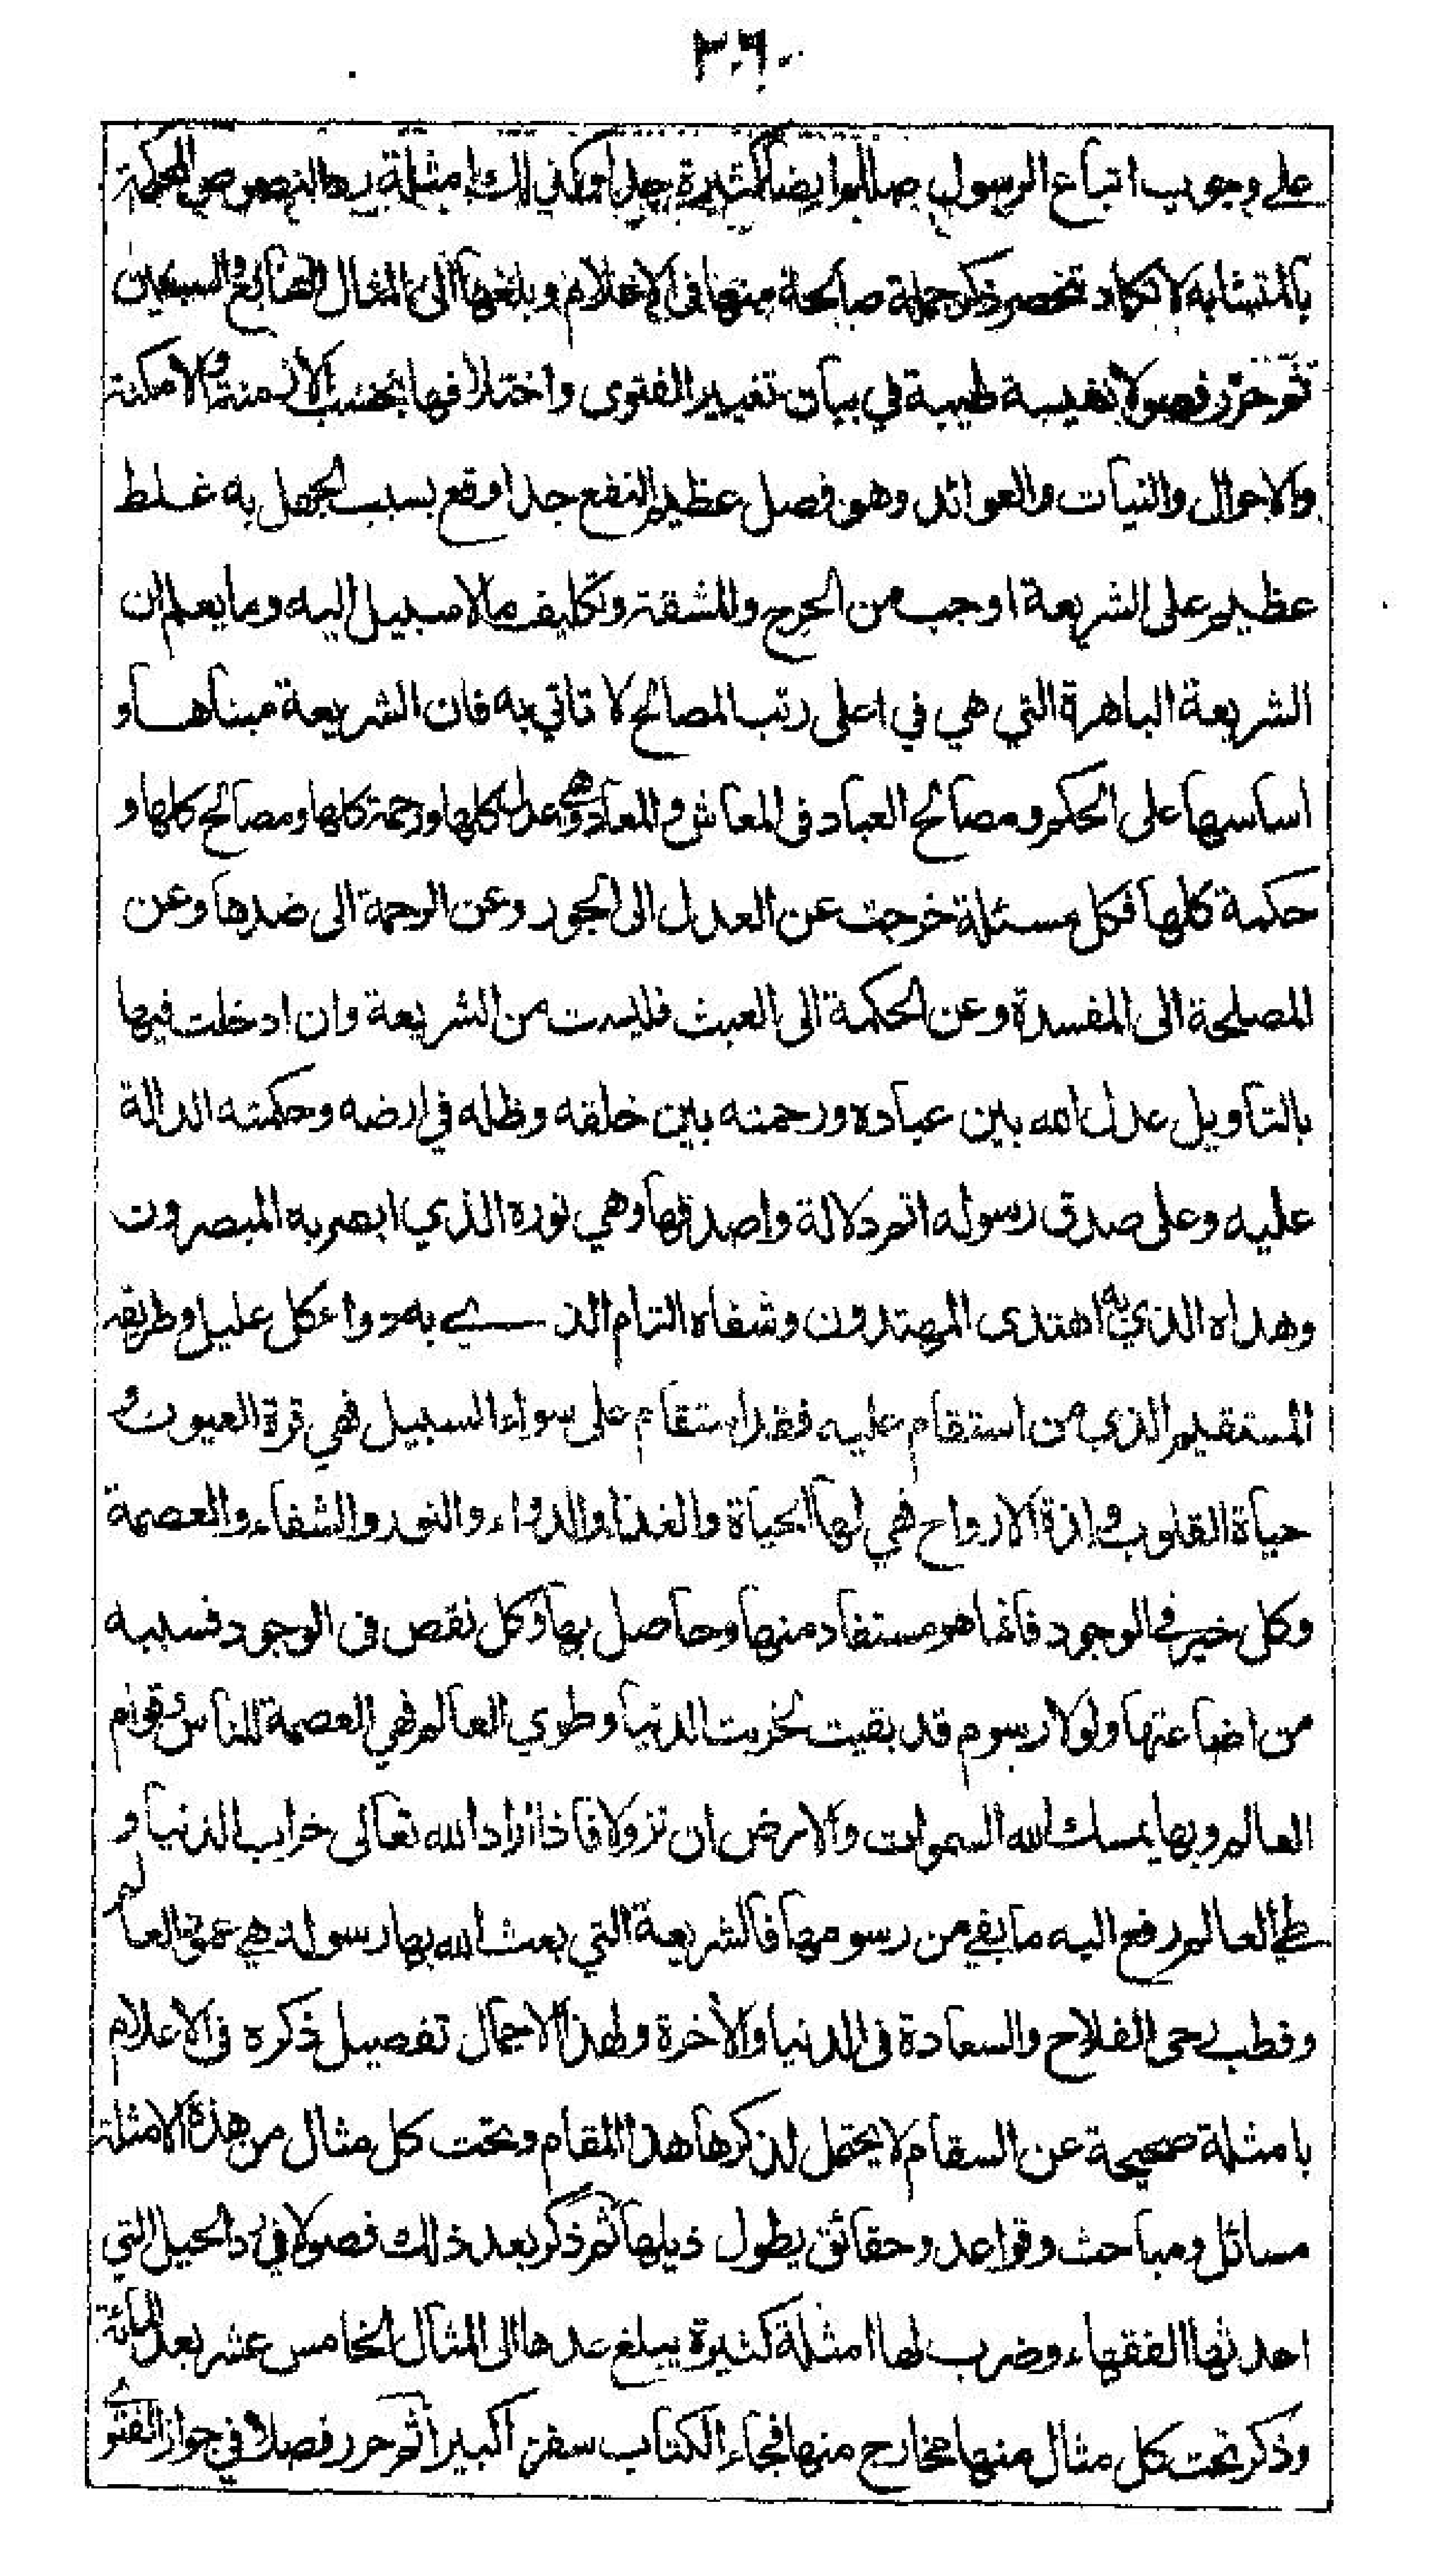 ٢٠٦
على وجوب اتباع الرسول صلالوا يضا كثيرة جدا وكذلك امثلة رد النصوص المحكمة
بالمتشابه لا تكاد تنحصر ذكر جملة صالحة منها في الاعلام وبلغها الى المثال الرابع والسبعين
ثم حرر فصولا نفيسة طيبة في بيان تغيير الفتوى واختلافها بحسب الازمنة والامكنة
والاحوال والنيات والعوائد وهو فصل عظيم النفع جدا وقع بسبب الجهل به غلط
عظيم على الشريعة اوجب من الحرج والمشقة وتكليف مالا سبيل اليه وما يعلم ان
الشريعة الباهرة التي هي في اعلى رتب المصالح لا تاتي به فان الشريعة مبناها و
اساسها على الحكم ومصالح العباد في المعاش والمعاد وهي عدل كلها ورحمة كلها ومصالح كلها و
حكمة كلها فكل مسئلة خرجت عن العدل الى الجور وعن الرحمة الى ضدها وعن
المصلحة الى المفسدة وعن الحكمة الى العبث فليست من الشريعة وان ادخلت فيها
بالتاويل عدل الله بين عباده ورحمته بين خلقه وظله في ارضه وحكمته الدالة
عليه وعلى صدق رسوله اتم دلالة واصدقها وهي نوره الذي ابصر به المبصرون
وهداه الذي به اهتدى المهتدون وشفاه التام الذي به دواء كل عليل وطريقه
المستقيم الذي من استقام عليه فقد استقام على سواء السبيل فهي قرة العيون و
حياة القلوب ولذة الارواح فهي لها الحياة والغذاء والدواء والنور والشفاء والعصمة
وكل خير في الوجود فانما هو مستفاد منها وحاصل بها وكل نقص في الوجود فسببه
من اضاعتها ولولا رسوم قد بقيت لخربت الدنيا وطوي العالم فهي العصمة للناس وقوام
العالم وبها يمسك الله السموات والارض ان تزولا فاذا اراد الله تعالى خراب الدنيا و
طي العالم رفع اليه ما بقي من رسومها فالشريعة التي بعث الله بها رسوله هي عمود العالم
وقطب رحى الفلاح والسعادة في الدنيا والأخرة ولهذا الاجمال تفصيل ذكره في الاعلام
بامثلة صحيحة عن السقام لا يحتمل لذكرها هذا المقام وتحت كل مثال من هذه الامثلة
مسائل ومباحث وقواعد وحقائق يطول ذيلها ثم ذكر بعد ذلك فصولا في رد الحيل التي
احدثها الفقهاء وضرب لها امثلة كثيرة يبلغ عدها الى المثال الخامس عشر بعد المائة
وذكر تحت كل مثال منها مخارج منها فجاء الكتاب سفرا كبيرا ثم حرر فصلا في جواز الفتوى